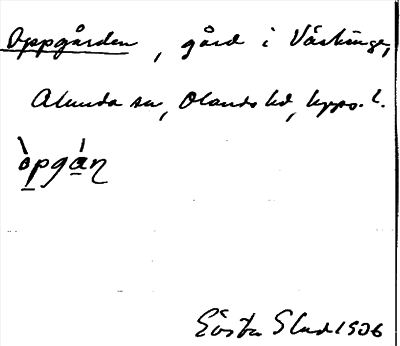 Oppgården, gård i Väskinge,
Alunda sn, Olands hd, Upps. l.
òpgán
Gösta Sland 1906